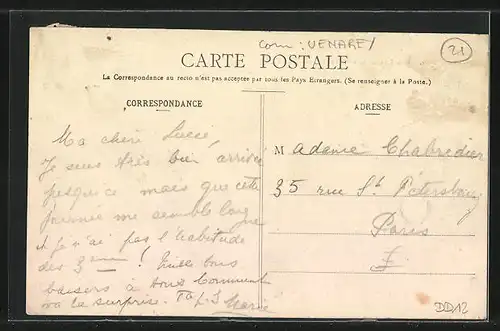 Com: VENAREY
21
CARTE POSTALE
La Correspondance au recto n'est pas acceptée par tous les Pays Étrangers. (Se renseigner à la Poste.)
CORRESPONDANCE
ADRESSE
Ma chère Lucie,
Je suis très bien arrivée
jusqu'ici mais que cette
journée me semble longue
je n'ai pas l'habitude
des 3ème! bons
baisers à tous Comment
va la surprise. Ta Marie
Madame Chabredier
35 rue St Pétersbourg
Paris
DD12